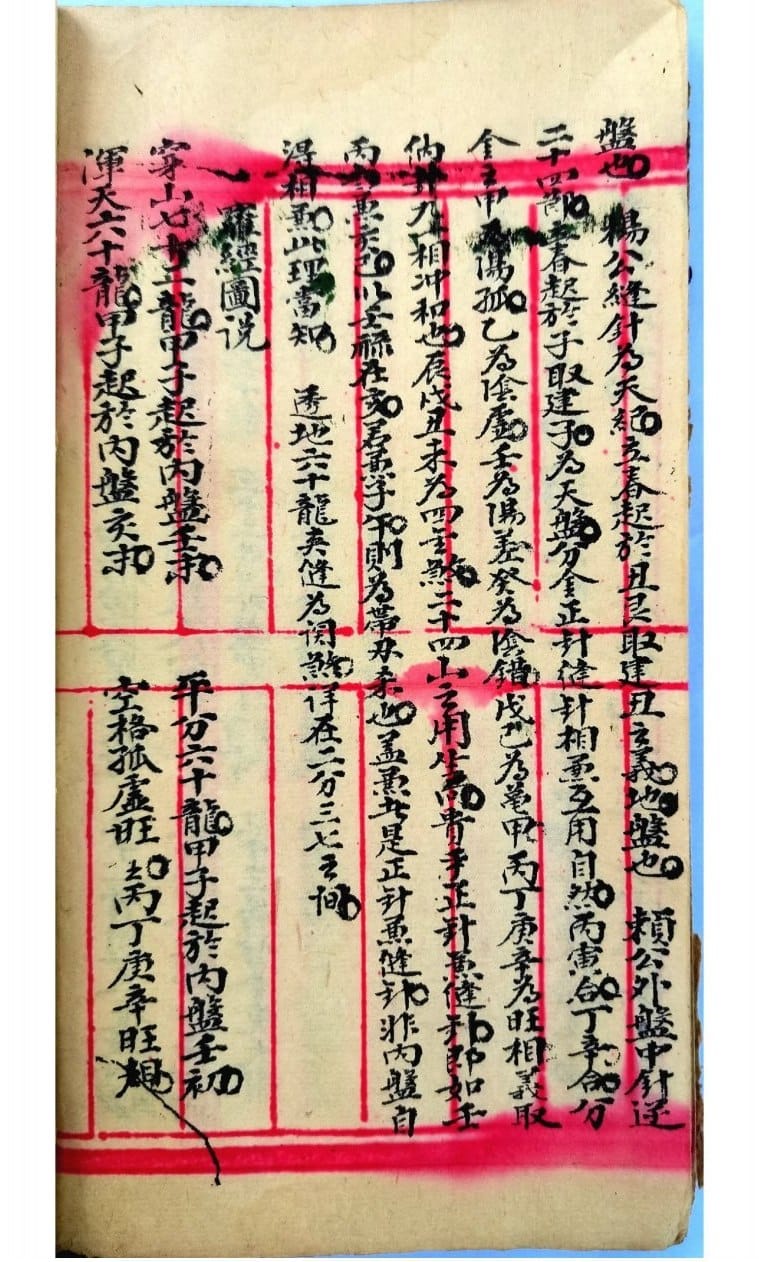 盤也 楊公縫針為天紀立春起於丑艮取建丑之義地盤也 賴公外盤中針逆
二十四節立春起於子取建子為天盤分金正針縫針相兼互用自然丙寅合丁辛合分
金之甲為陽孤乙為陰虛壬為陽差癸為陰錯戊己為龜甲丙丁庚辛為旺相義取
納卦九六相冲和也辰戌丑未為四金煞二十四山之用生貴乎正針兼縫針即如壬
丙兼亥巳以壬祿在亥若兼子午則為帶刃柔也盖兼者是正針兼縫針非内盤自
得相兼此理當知 透地六十龍夾縫為関煞詳在二分三七之间
一羅經圖说
穿山七十二龍甲子起於内盤壬末 平分六十龍甲子起於内盤壬初
渾天六十龍甲子起於内盤亥末 空格孤虛旺 丙丁庚辛旺相